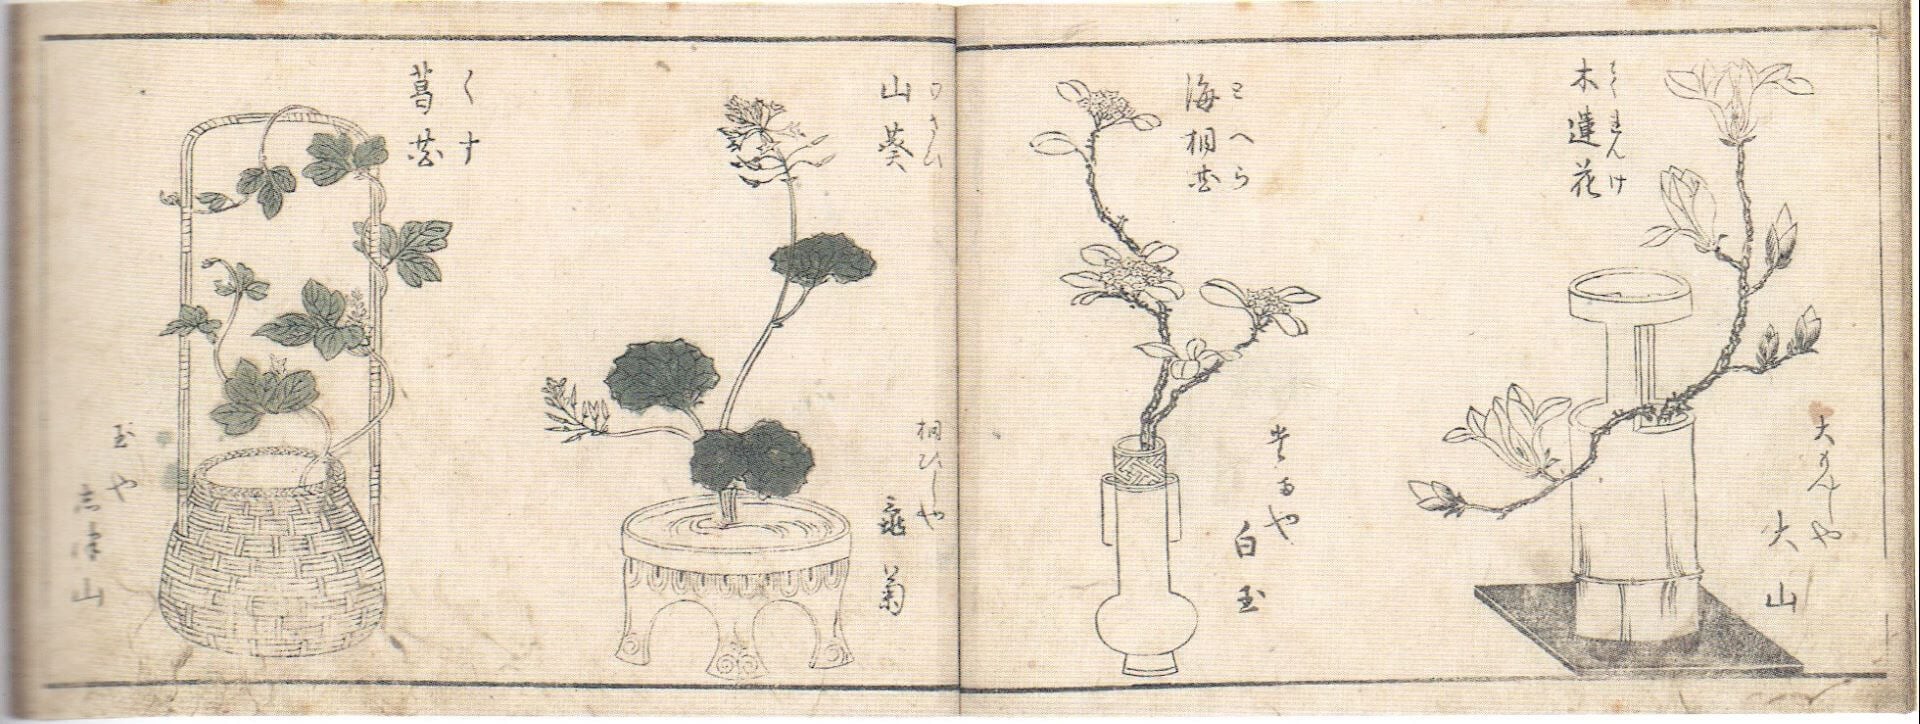 もくれんけ
木蓮花
大もんしや
大山
とへら
海桐花
白玉
わさひ
山葵
桐ひしや
亀菊
くす
葛花
玉や
志津山